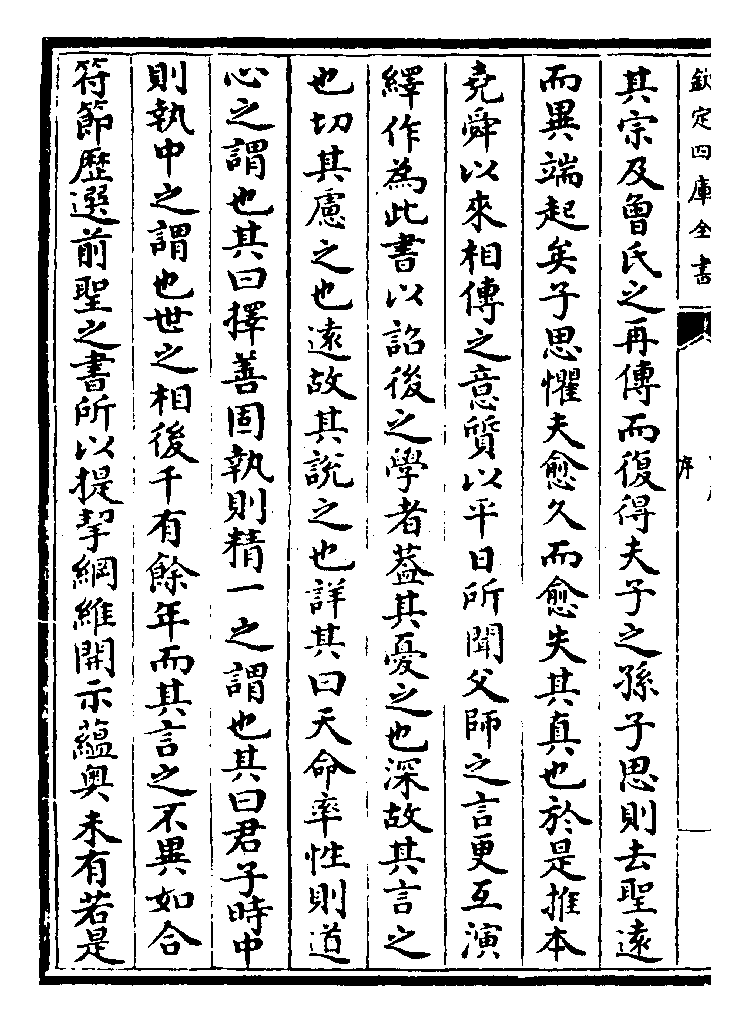 欽定四庫全書
序
其宗及曾氏之再傳而復得夫子之孫子思則去聖遠
而異端起矣子思懼夫愈久而愈失其真也於是推本
堯舜以來相傳之意質以平日所聞父師之言更互演
繹作為此書以詔後之學者葢其憂之也深故其言之
也切其慮之也遠故其說之也詳其曰天命率性則道
心之謂也其曰擇善固執則精一之謂也其曰君子時中
則執中之謂也世之相後千有餘年而其言之不異如合
符節歴選前聖之書所以提挈綱維開示蘊奥未有若是